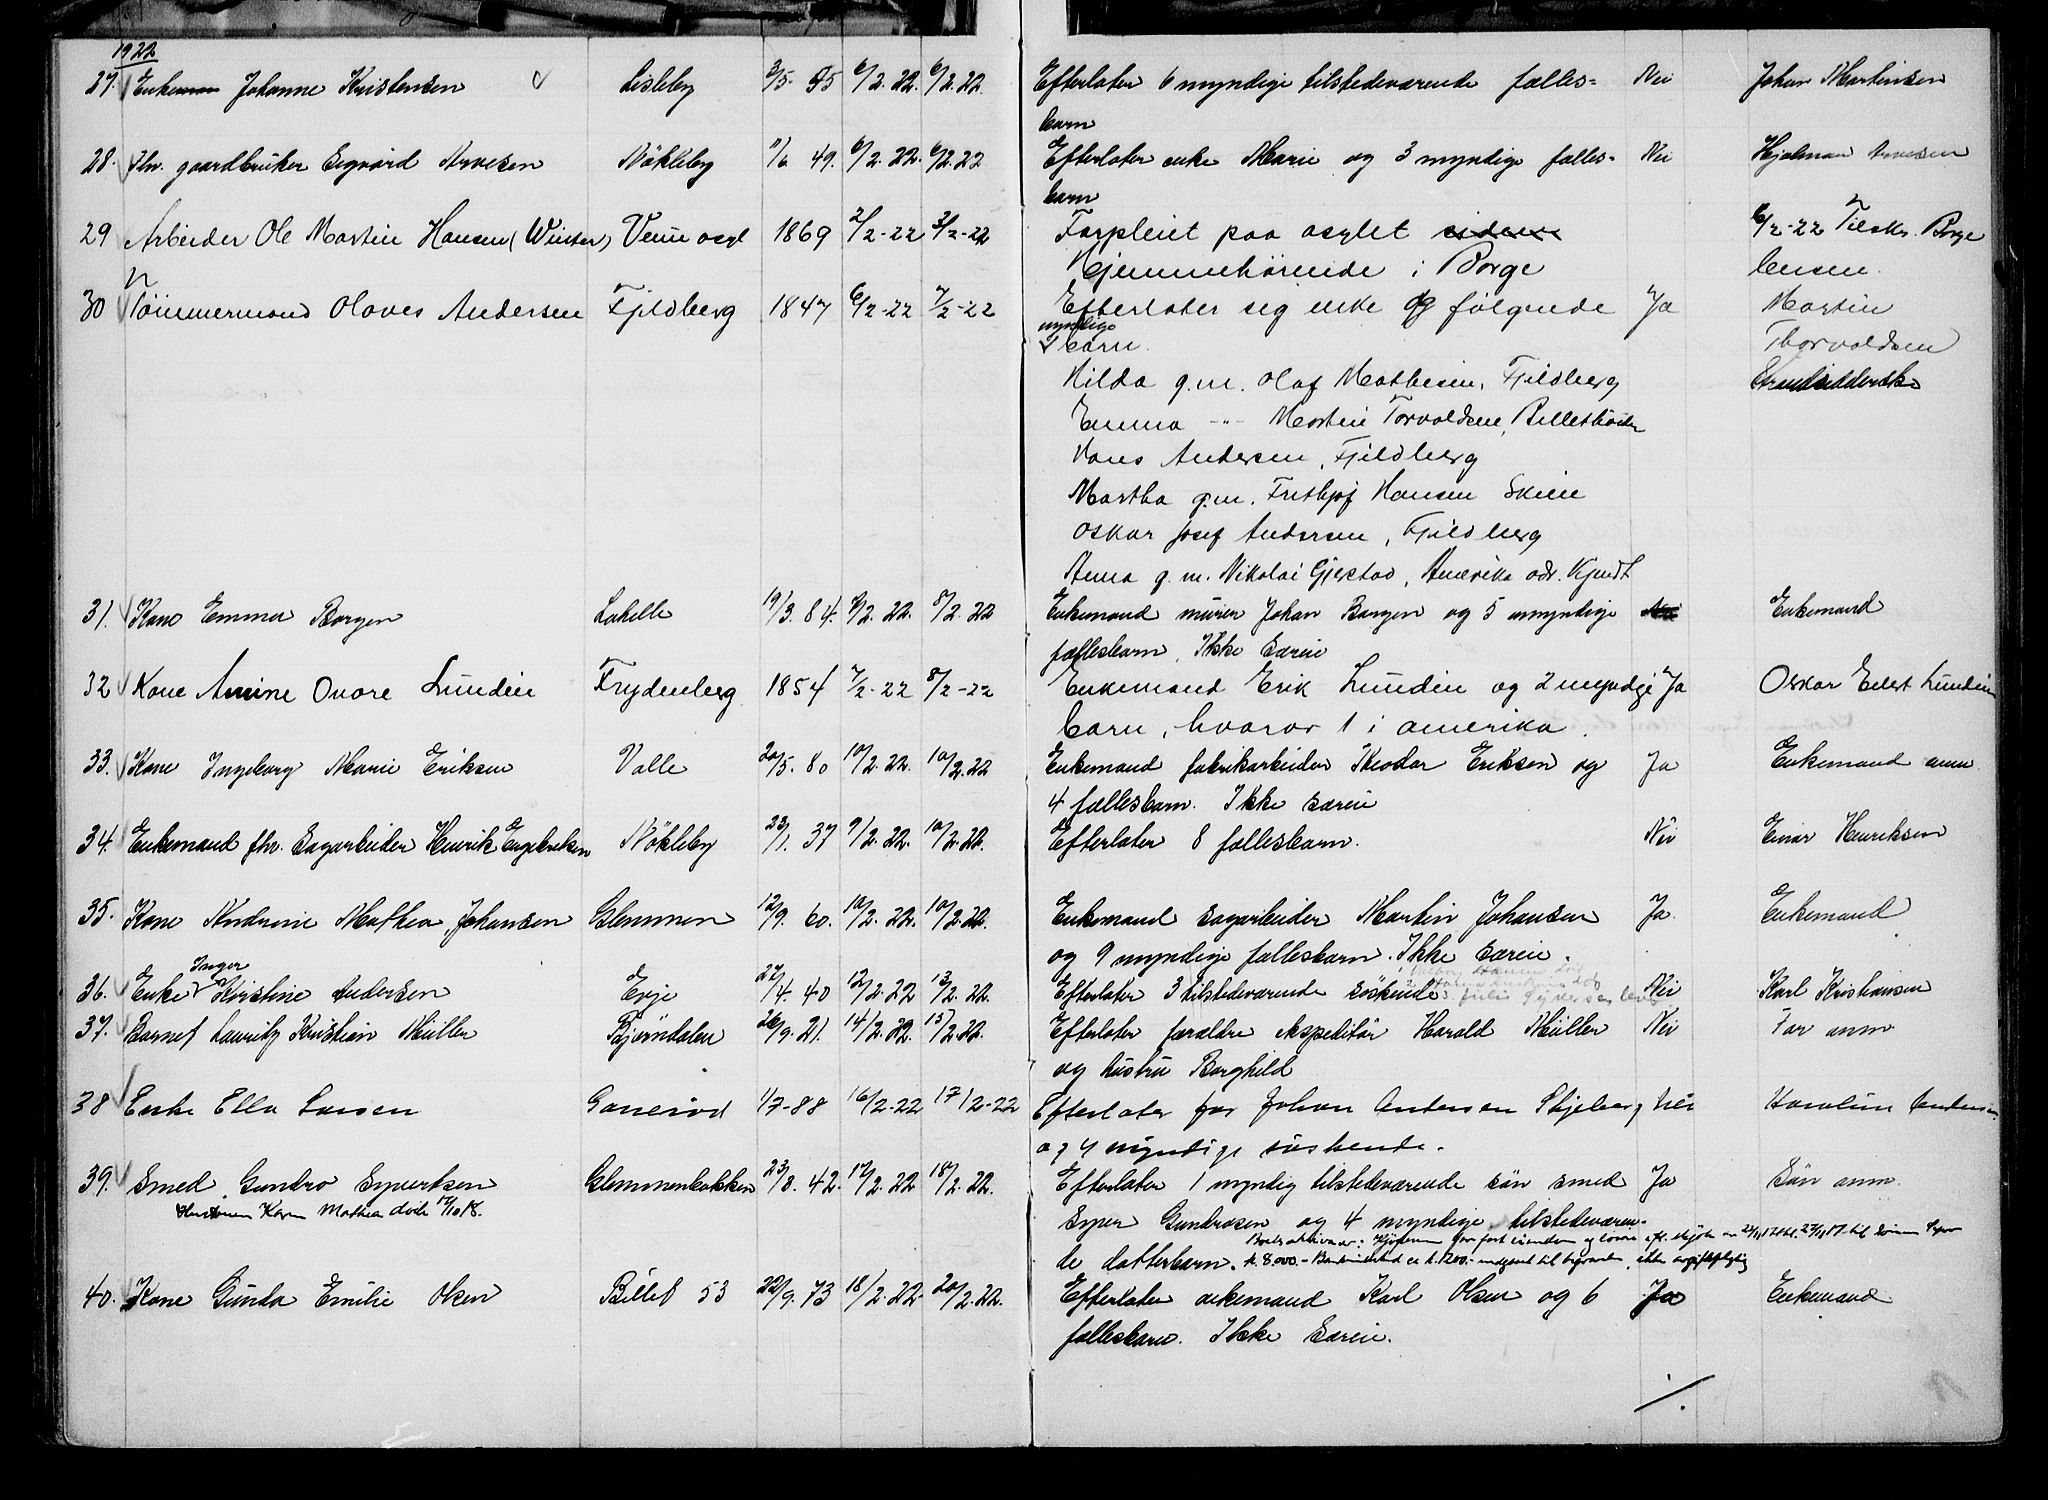 1922
27. Enke Johanne Kristensen Lisleby 3/5. 55 6/2. 22. 6/2. 22. Efterlater 6 myndige tilstedeværende fælles= Nei Johan Martinsen
barn
28. fhv. gaardbruker Sigvard Arvesen Nökleby 11/6 49. 6/2. 22. 6/2. 22 Efterlater enke Marie og 3 myndige fælles- Nei Hjalmar Arvesen
barn
29 Arbeider Ole Martin Hansen (Winter) Veum asyl 1869 2/2-22 3/2-22 Forpleiet paa asylet siden 6/2-22 Borge
Hjemmehörende i Borge
30 Tömmermand Olaves Andersen Fjeldberg 1847 6/2-22 7/2-22 Efterlater sig enke og følgende Ja Martin
myndige
barn. Thorvaldsen
Hilda g.m. Olaf Mathesen, Fjeldberg
Emma -"- Martin Torvaldsen,
Hans Andersen, Fjeldberg
Martha g.m. Frithjof Hansen Skien
Oskar Josef Andersen, Fjeldberg
Anna g.m. Nikolai Gjerstad, Amerika adr. Kjendt
31. Kone Emma Borgen Lahelle 19/3. 84. 8/2. 22 Enkemand murer Johan Borgen og 5 umyndige Nei Enkemand
fællesbarn. Ikke særeie
32 Kone Amine Ovare Lundin Frydenberg 1854 7/2-22 8/2-22 Enkemand Erik Lundin og 2 myndige Ja Oskar Edert Lundin
barn, hvorav 1 i amerika.
33. Kone Ingeborg Marie Eriksen Valle 20/5. 80 10/2. 22. 10/2. 22 Enkemand fabrikarbeider Theodor Eriksen og Ja Enkemand anm.
4 fællesbarn. Ikke særeie
34. Enkemand fhv. Sagarbeider Henrik Engebretsen Nökleby 23/1. 37 9/2. 22. 10/2. 22. Efterlater 8 fællesbarn. Nei Einar Henriksen
35. Kone Andrine Mathea Johansen Glemmen 12/9. 60. 10/2. 22. 10/2. 22. Enkemand sagarbeider Martin Johansen Ja. Enkemand
og 9 myndige fællesbarn. Ikke særeie.
Inger
36. Enke Kristine Andersen Evje 27/4. 40 12/2. 22 13/2. 22. Efterlater 3 tilstedeværende söskende Nei Karl Kristiansen
37. Barnet Lauritz Kristian Müller Bjørndalen 26/9. 21. 14/2. 22. 15/2. 22. Efterlater forældre ekspeditör Harald Müller Nei Far anm
og hustru Borghild
38 Enke Ella Larsen 1/7-88 16/2-22 17/2-22 Efterlater far Johan Andersen Skjeberg Nei Karoline Andersen
og 4 myndige söskende.
39. Smed Gundro Syvertsen Glemmenbakken 23/8. 42. 17/2. 22 18/2. 22. Efterlater 1 myndig tilstedeværende sön smed Ja Sön anm.
Hustruen Karen Mathea döde 17/10 18.
Syver Gundrosen og 4 myndige tilstedeværen-
de datterbarn. k. 8,000.-
40. Kone Gunda Emilie Olsen Billet 53 22/9. 73 18/2. 22. 20/2. 22. Efterlater enkemand Karl Olsen og 6 Ja Enkemand
fællesbarn. Ikke særeie.